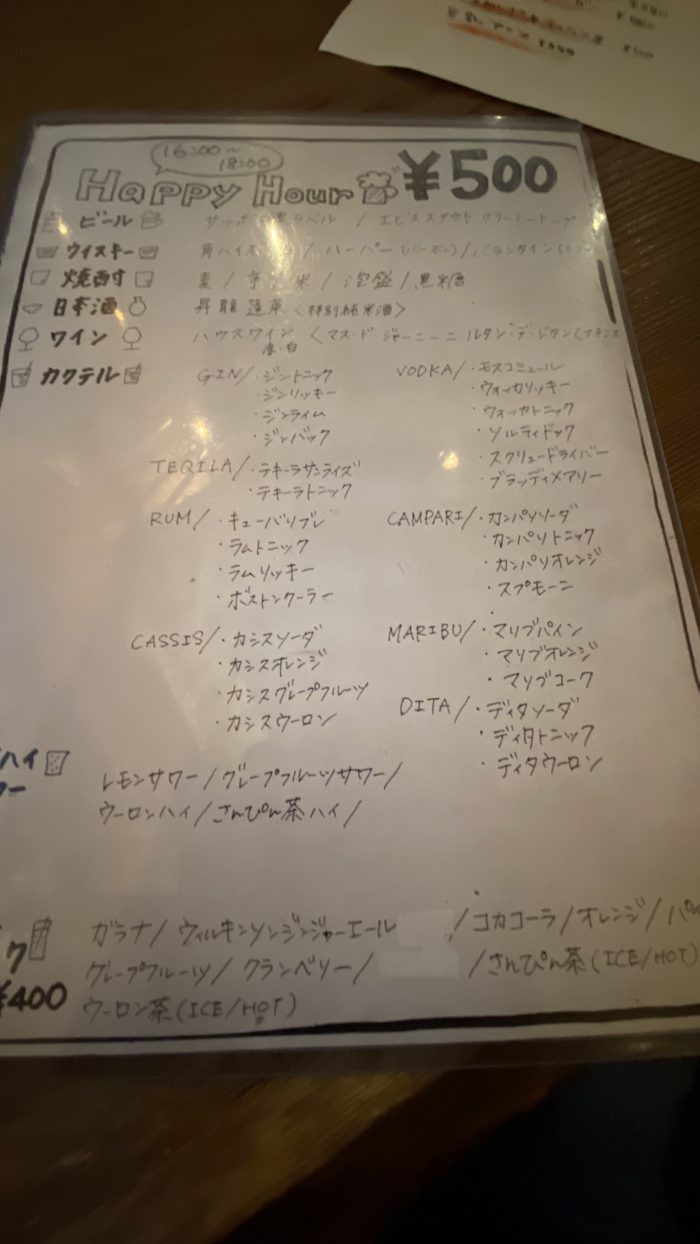 16:00~
18:00
Happy Hour ¥500
ビール サッポロ黒ラベル / エビススタウトクリーミートップ
ウイスキー 角ハイボール / ハーパー(バーボン) / バランタイン
焼酎 麦 / 芋 / 米 / 泡盛 / 黒糖
日本酒 昇龍蓬莱 <特別純米酒>
ワイン ハウスワイン 赤・白 <マス・ド・ジャーニーニ ルタン・デ・ジタン(フランス
カクテル GIN/・ジントニック VODKA/・モスコミュール
・ジンリッキー ・ウォッカリッキー
・ジンライム ・ウォッカトニック
・ジンバック ・ソルティドック
TEQILA/・テキーラサンライズ ・スクリュードライバー
・テキーラトニック ・ブラッディメアリー
RUM/・キューバリブレ CAMPARI/・カンパリソーダ
・ラムトニック ・カンパリトニック
・ラムリッキー ・カンパリオレンジ
・ボストンクーラー ・スプモーニ
CASSIS/・カシスソーダ MARIBU/・マリブパイン
・カシスオレンジ ・マリブオレンジ
・カシスグレープフルーツ ・マリブコーク
・カシスウーロン DITA/・ディタソーダ
・ディタトニック
・ディタウーロン
ハイ
ワー
レモンサワー/グレープフルーツサワー/
ウーロンハイ/さんぴん茶ハイ/
ク
¥400
ガラナ/ウィルキンソンジンジャーエール /コカコーラ/オレンジ/パイ
グレープフルーツ/クランベリー/ /さんぴん茶(ICE/HOT)
ウーロン茶(ICE/HOT)